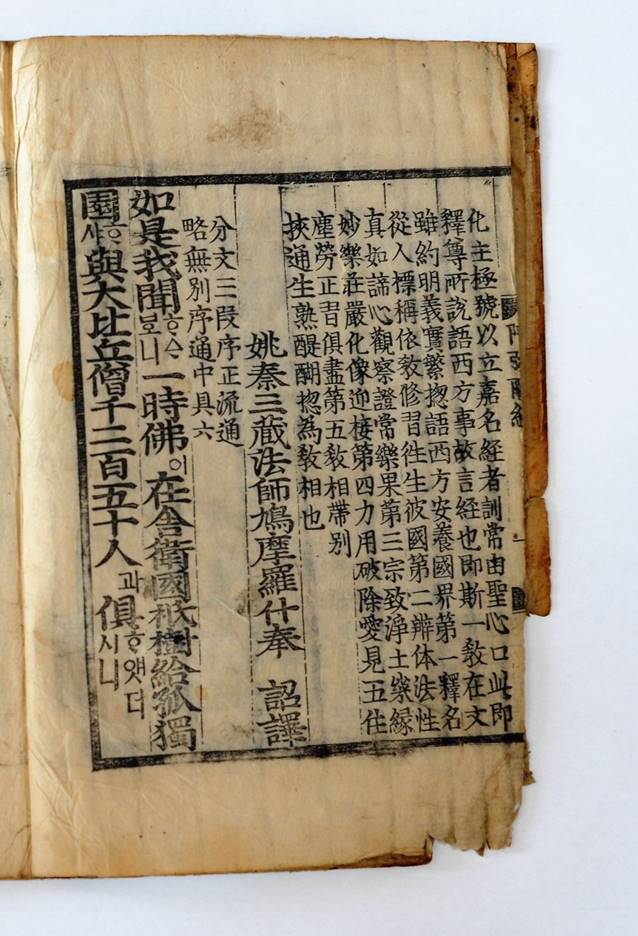 化主極號以立嘉名経者訓常由聖心口此即
釋尊所說語西方事故言経也即斯一教在文
雖約明義實繁揔語西方安養國界第一釋名
從人標稱依教修習徃生彼國第二辨体法性
真如諦心觀察證常樂果第三宗致淨土業緣
妙樂莊嚴化像迎接第四力用破除愛見五住
塵勞正習俱盡第五教相帶別
挾通生熟醍醐揔為教相也
姚秦三蔵法師鳩摩羅什奉 詔譯
分文三段序正流通
略無別序通中具六
如是我聞ᄒᆞᄉᆞ보니一時佛이在舎衛國祇樹給孤獨
園ᄒᆞ샤與大比丘僧千二百五十人과俱ᄒᆞ얫더시니